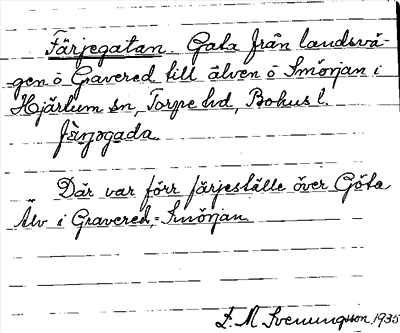 Färjegatan. Gata från landsvä-
gen ö Gravered till älven ö Smörjan i
Hjärtum sn, Torpe hd, Bohus l.
färjogada
Där var förr färjeställe över Göta
Älv i Gravered,-Smörjan
F. M. Svenungsson 1935